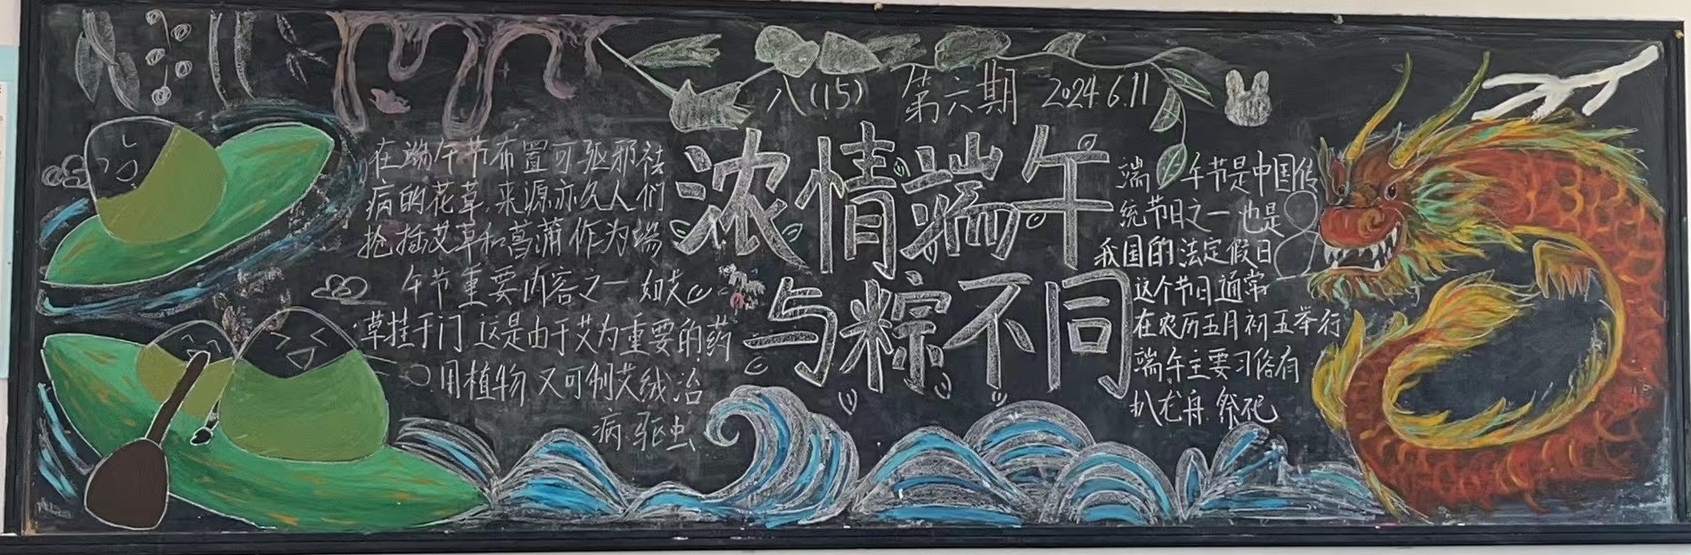 八(15) 第六期 2024.6.11
浓情端午
与粽不同
在端午节布置可驱邪祛
病的花草,来源亦久人们
抢插艾草和菖蒲作为端
午节重要内容之一,如艾
草挂于门 这是由于艾为重要的药
用植物 又可制艾绒治
病,驱虫
端午节是中国传
统节日之一 也是
我国的法定假日
这个节日通常
在农历五月初五举行
端午主要习俗有
扒龙舟,祭祀